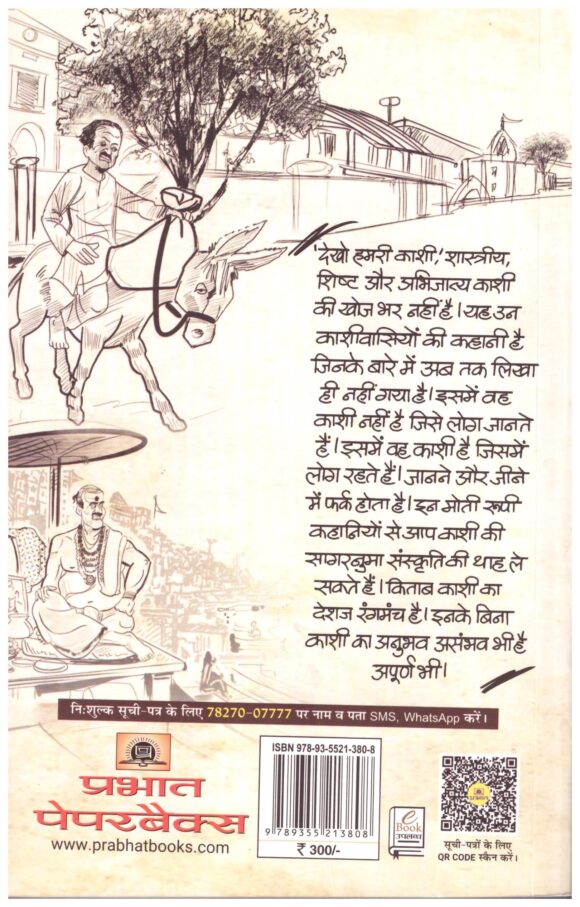 'देखो हमरी काशी,' शास्त्रीय,
शिष्ट और अभिजात्य काशी
की खोज भर नहीं है। यह उन
काशीवासियों की कहानी है
जिनके बारे में अब तक लिखा
ही नहीं गया है। इसमें वह
काशी नहीं है जिसे लोग जानते
हैं। इसमें वह काशी है जिसमें
लोग रहते हैं। जानने और जीने
में फर्क होता है। इन मोती रूपी
कहानियों से आप काशी की
सागरनुमा संस्कृति की थाह ले
सकते हैं। किताब काशी का
देशज रंगमंच है। इनके बिना
काशी का अनुभव असंभव भी है
अपूर्ण भी।
नि:शुल्क सूची-पत्र के लिए 78270-07777 पर नाम व पता SMS, WhatsApp करें।
प्रभात
पेपरबैक्स
www.prabhatbooks.com
ISBN 978-93-5521-380-8
9 789355 213808
₹ 300/-
e
Book
उपलब्ध
सूची-पत्रों के लिए
QR CODE स्कैन करें।